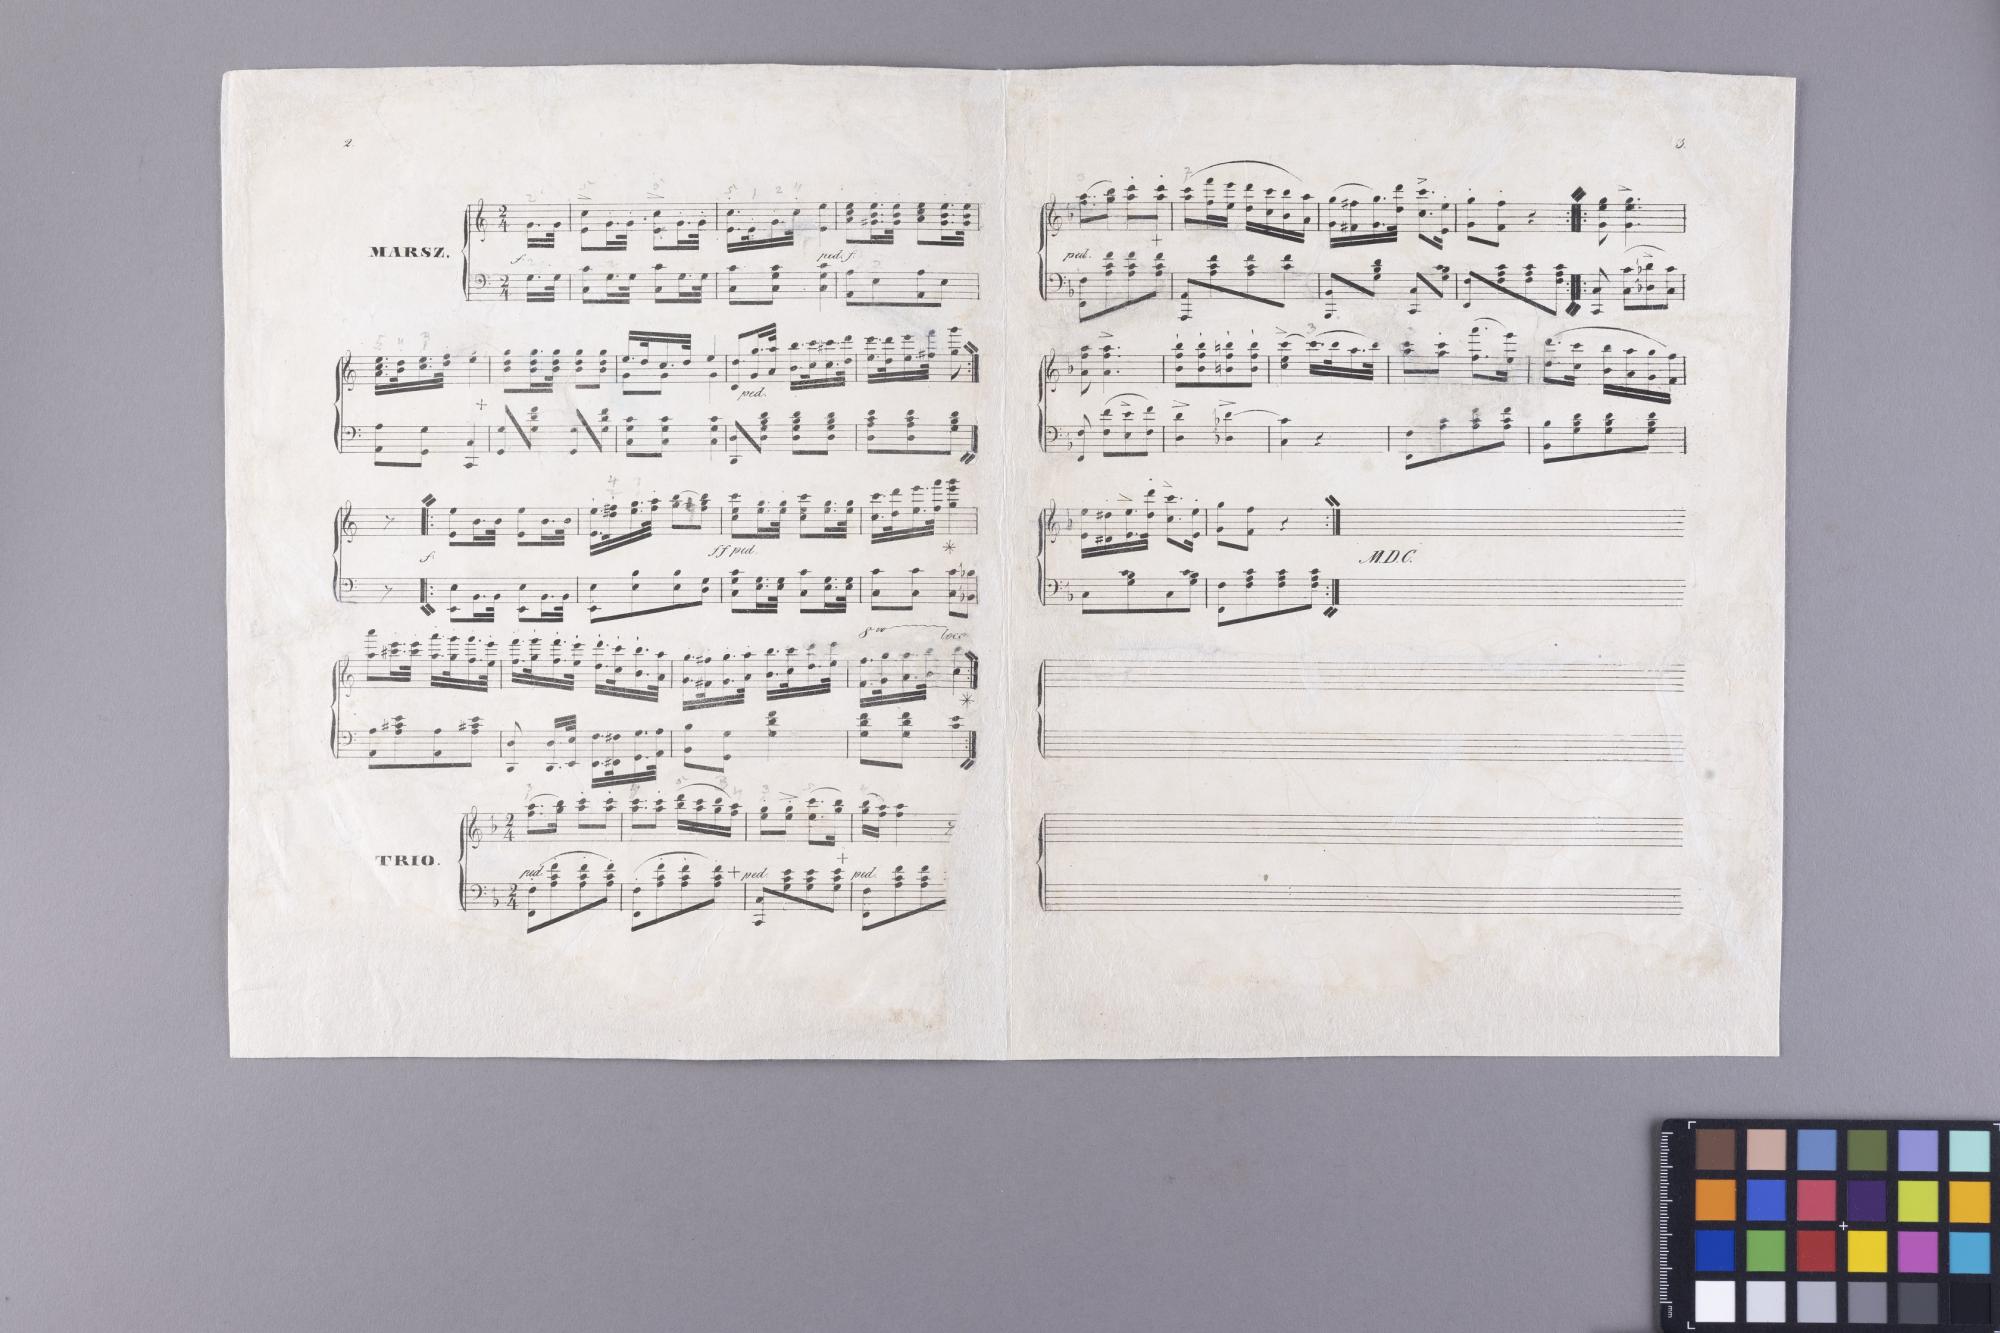 2.
MARSZ.
f.
ped. f.
ped.
f.
ff ped.
8va loco
TRIO.
ped.
ped.
ped.
3.
ped.
M.D.C.